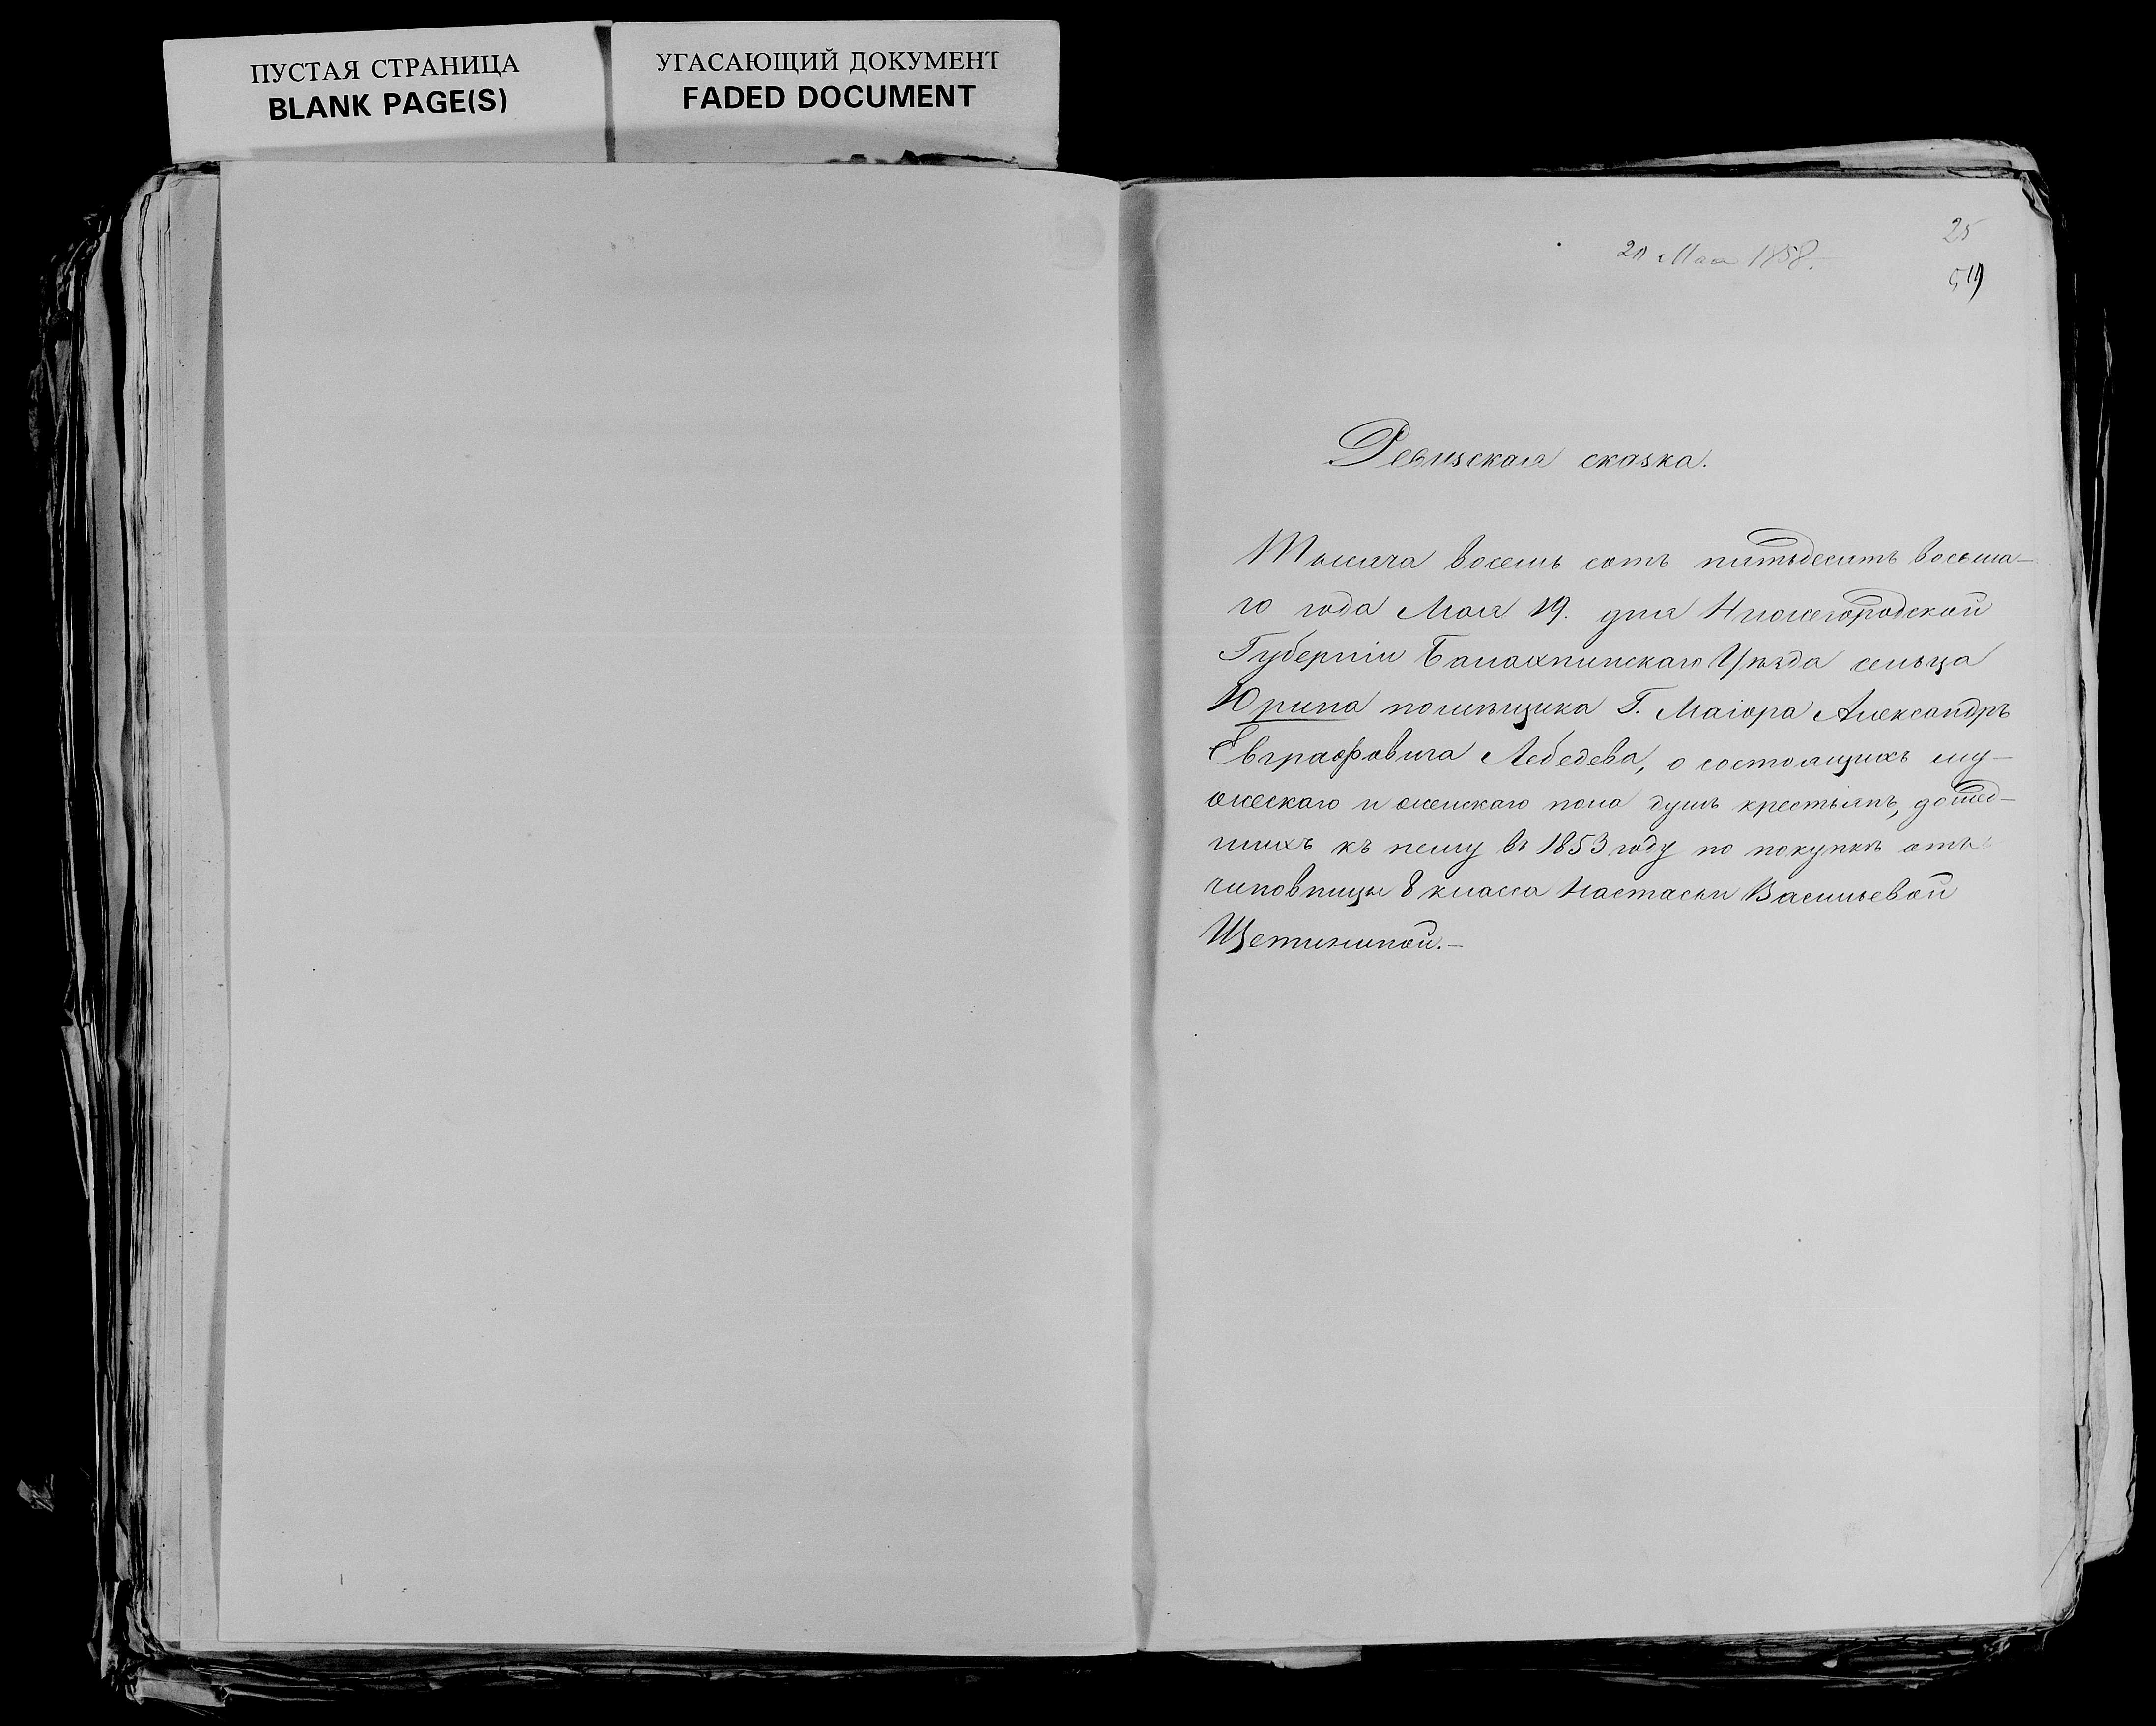 ПУСТАЯ СТРАНИЦА
BLANK PAGE(S)
УГАСАЮЩИЙ ДОКУМЕНТ
FADED DOCUMENT
25
20 Мая 1858.
519
Ревизская сказка.
Тысяча восемь сотъ пятьдесятъ восьма-
го года Мая 19. дня Нижегородской
Губерніи Балахнинскаго Уѣзда сельца
Юрина помѣщика Г. Маіора Александръ
Евграфовича Лебедева, о состоящихъ му-
жескаго и женскаго пола душъ крестьянъ, дошед-
шихъ къ нему въ 1853 году по покупкѣ отъ
чиновницы 8 класса Настасьи Васильевой
Щетининой.-